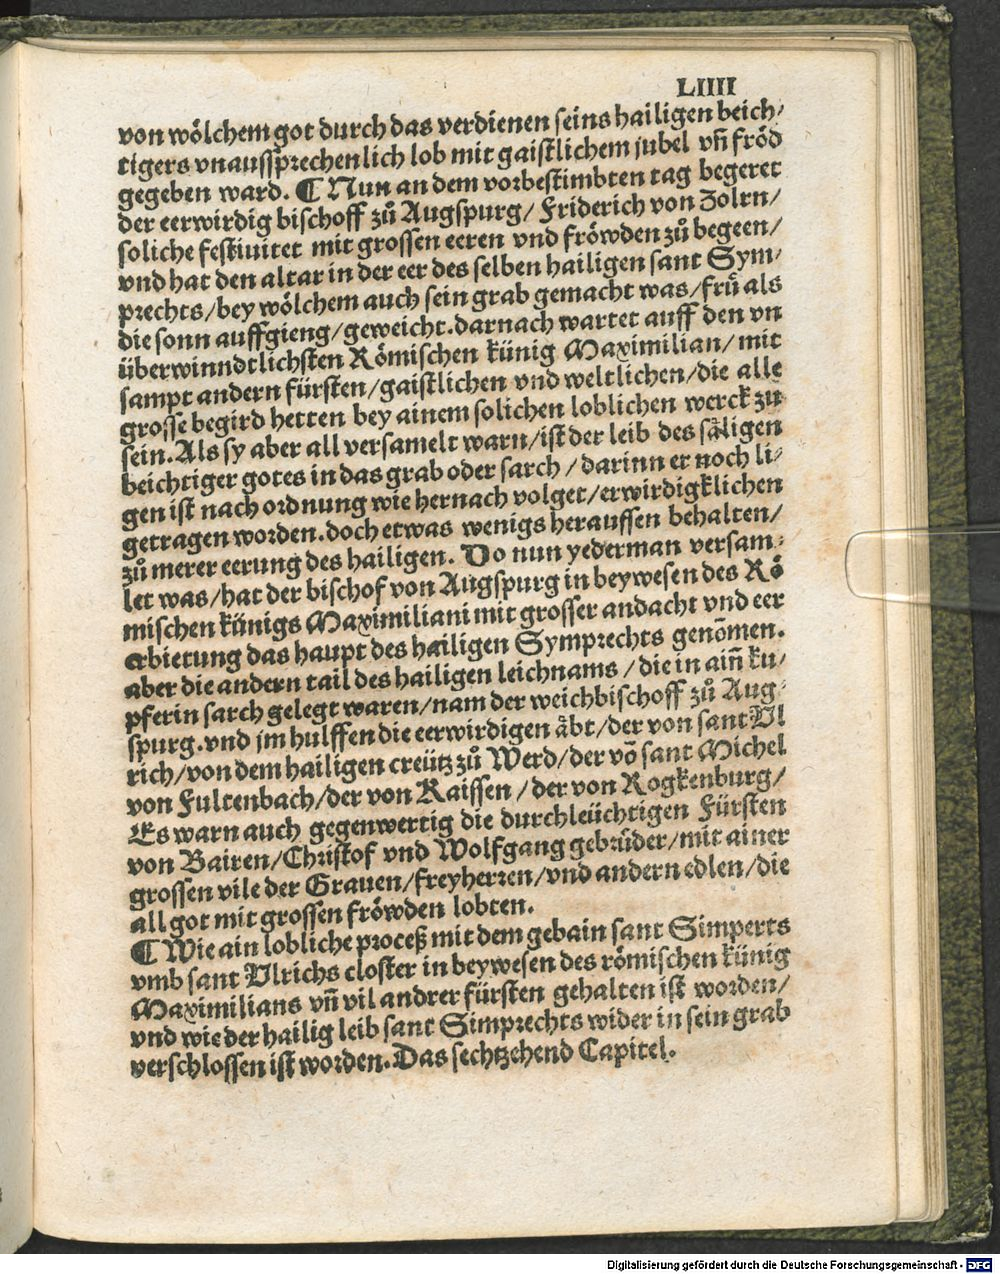 LIIII
von wölchem got durch das verdienen seins hailigen beich⸗
tigers vnaussprechenlich lob mit gaistlichem jubel vn̄ fröd
gegeben ward. ¶ Nun an dem vorbestimbten tag begeret
der eerwirdig bischoff zů Augspurg/ Friderich von Zolrn/
soliche festiuitet mit grossen eeren vnd fröwden zů begeen/
vnd hat den altar in der eer des selben hailigen sant Sym⸗
prechts/ bey wölchem auch sein grab gemacht was/ frů als
die sonn auffgieng/ geweicht. darnach wartet auff den vn
überwinndtlichsten Römischen künig Maximilian/ mit
sampt andern fürsten/ gaistlichen vnd weltlichen/ die alle
grosse begird hetten bey ainem solichen loblichen werck zu
sein. Als sy aber all versamelt warn/ ist der leib des säligen
beichtiger gotes in das grab oder sarch / darinn er noch li⸗
gen ist nach ordnung wie hernach volget/ erwirdigklichen
getragen worden. doch etwas wenigs heraussen behalten/
zů merer eerung des hailigen. Do nun yederman versam⸗
let was/ hat der bischof von Augspurg in beywesen des Rö
mischen künigs Maximiliani mit grosser andacht vnd eer
erbietung das haupt des hailigen Symprechts genōmen.
aber die andern tail des hailigen leichnams / die in ain̄ ku⸗
pferin sarch gelegt waren/ nam der weichbischoff zů Aug⸗
spurg. vnd jm hulffen die eerwirdigen äbt/ der von sant Vl
rich/ von dem hailigen creütz zů Werd/ der vō sant Michel
von Fultenbach/ der von Kaissen / der von Rogkenburg/
Es warn auch gegenwertig die durchleüchtigen Fürsten
von Bairen/ Christof vnd Wolfgang gebrůder/ mit ainer
grossen vile der Grauen/ freyherren/ vnd andern edlen/ die
all got mit grossen fröwden lobten.
¶ Wie ain lobliche proceß mit dem gebain sant Simperts
vmb sant Vlrichs closter in beywesen des römischen künig
Maximilians vn̄ vil andrer fürsten gehalten ist worden/
vnd wie der hailig leib sant Simprechts wider in sein grab
verschlossen ist worden. Das sechtzehend Capitel.
Digitalisierung gefördert durch die Deutsche Forschungsgemeinschaft - DFG